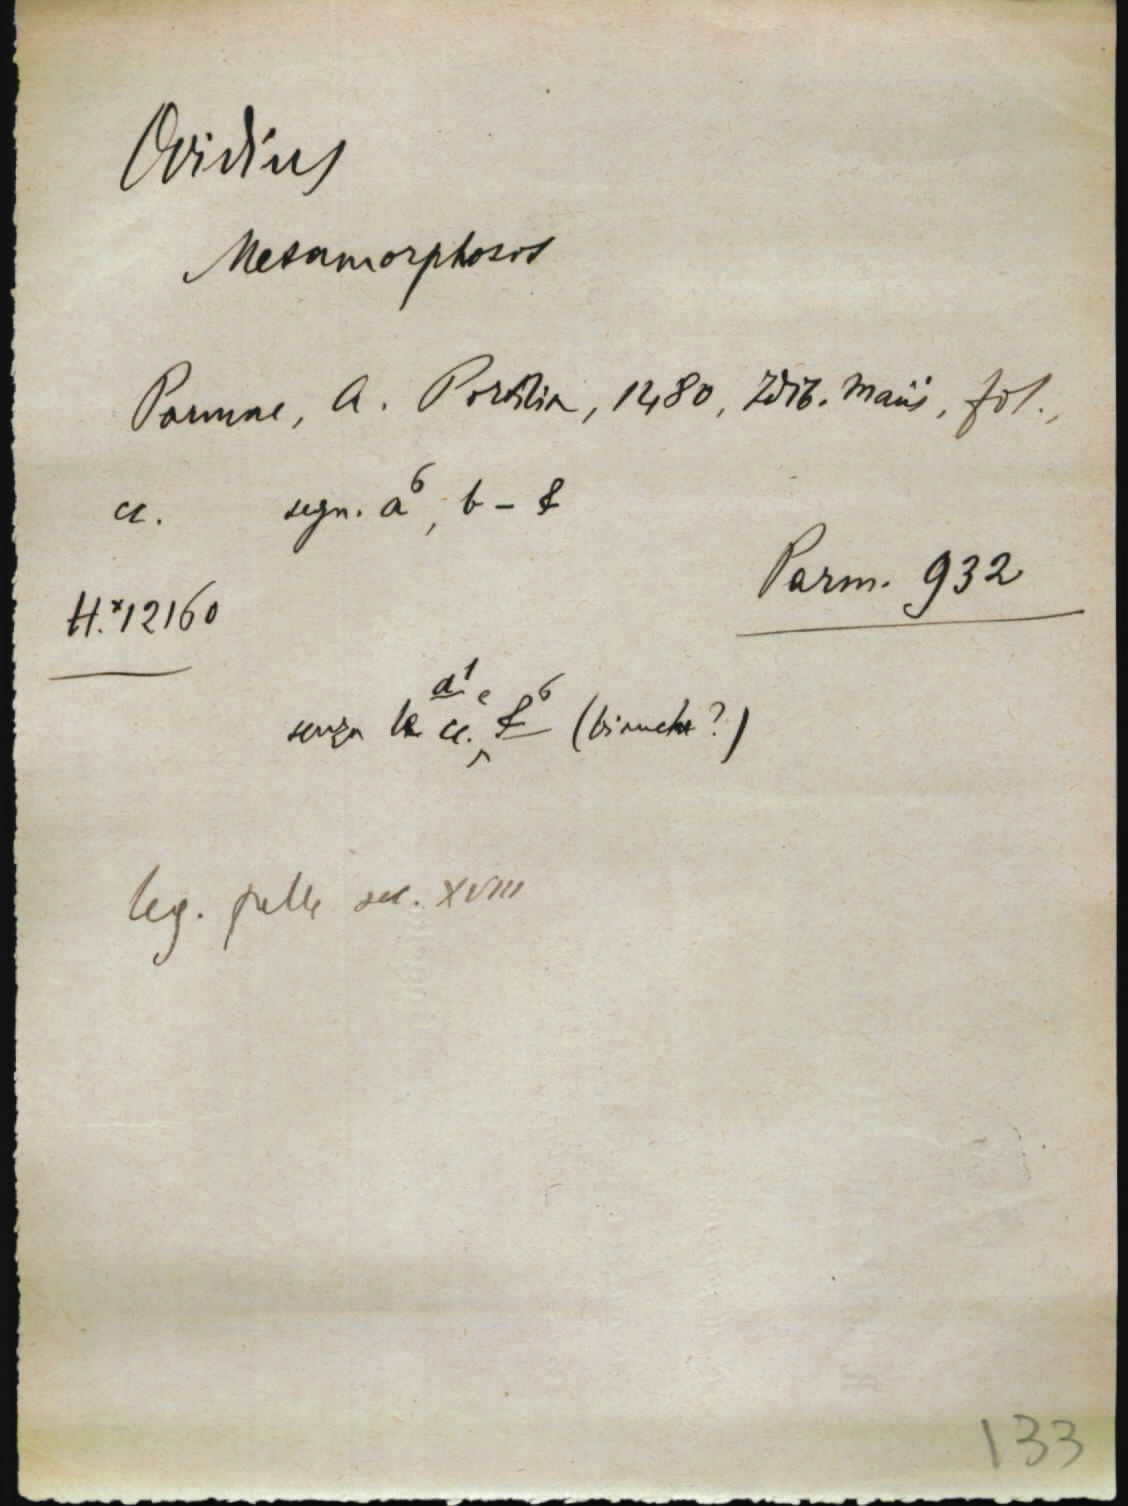 Ovidius
Metamorphosos
Parmae, A. Portilia, 1480, Idib. Maii, fol.,
cc. segn. a⁶, b - &
Parm. 932
H.*12160
senza le cc. a¹ e &⁶ (bianche?)
leg. pelle sec. XVIII
133